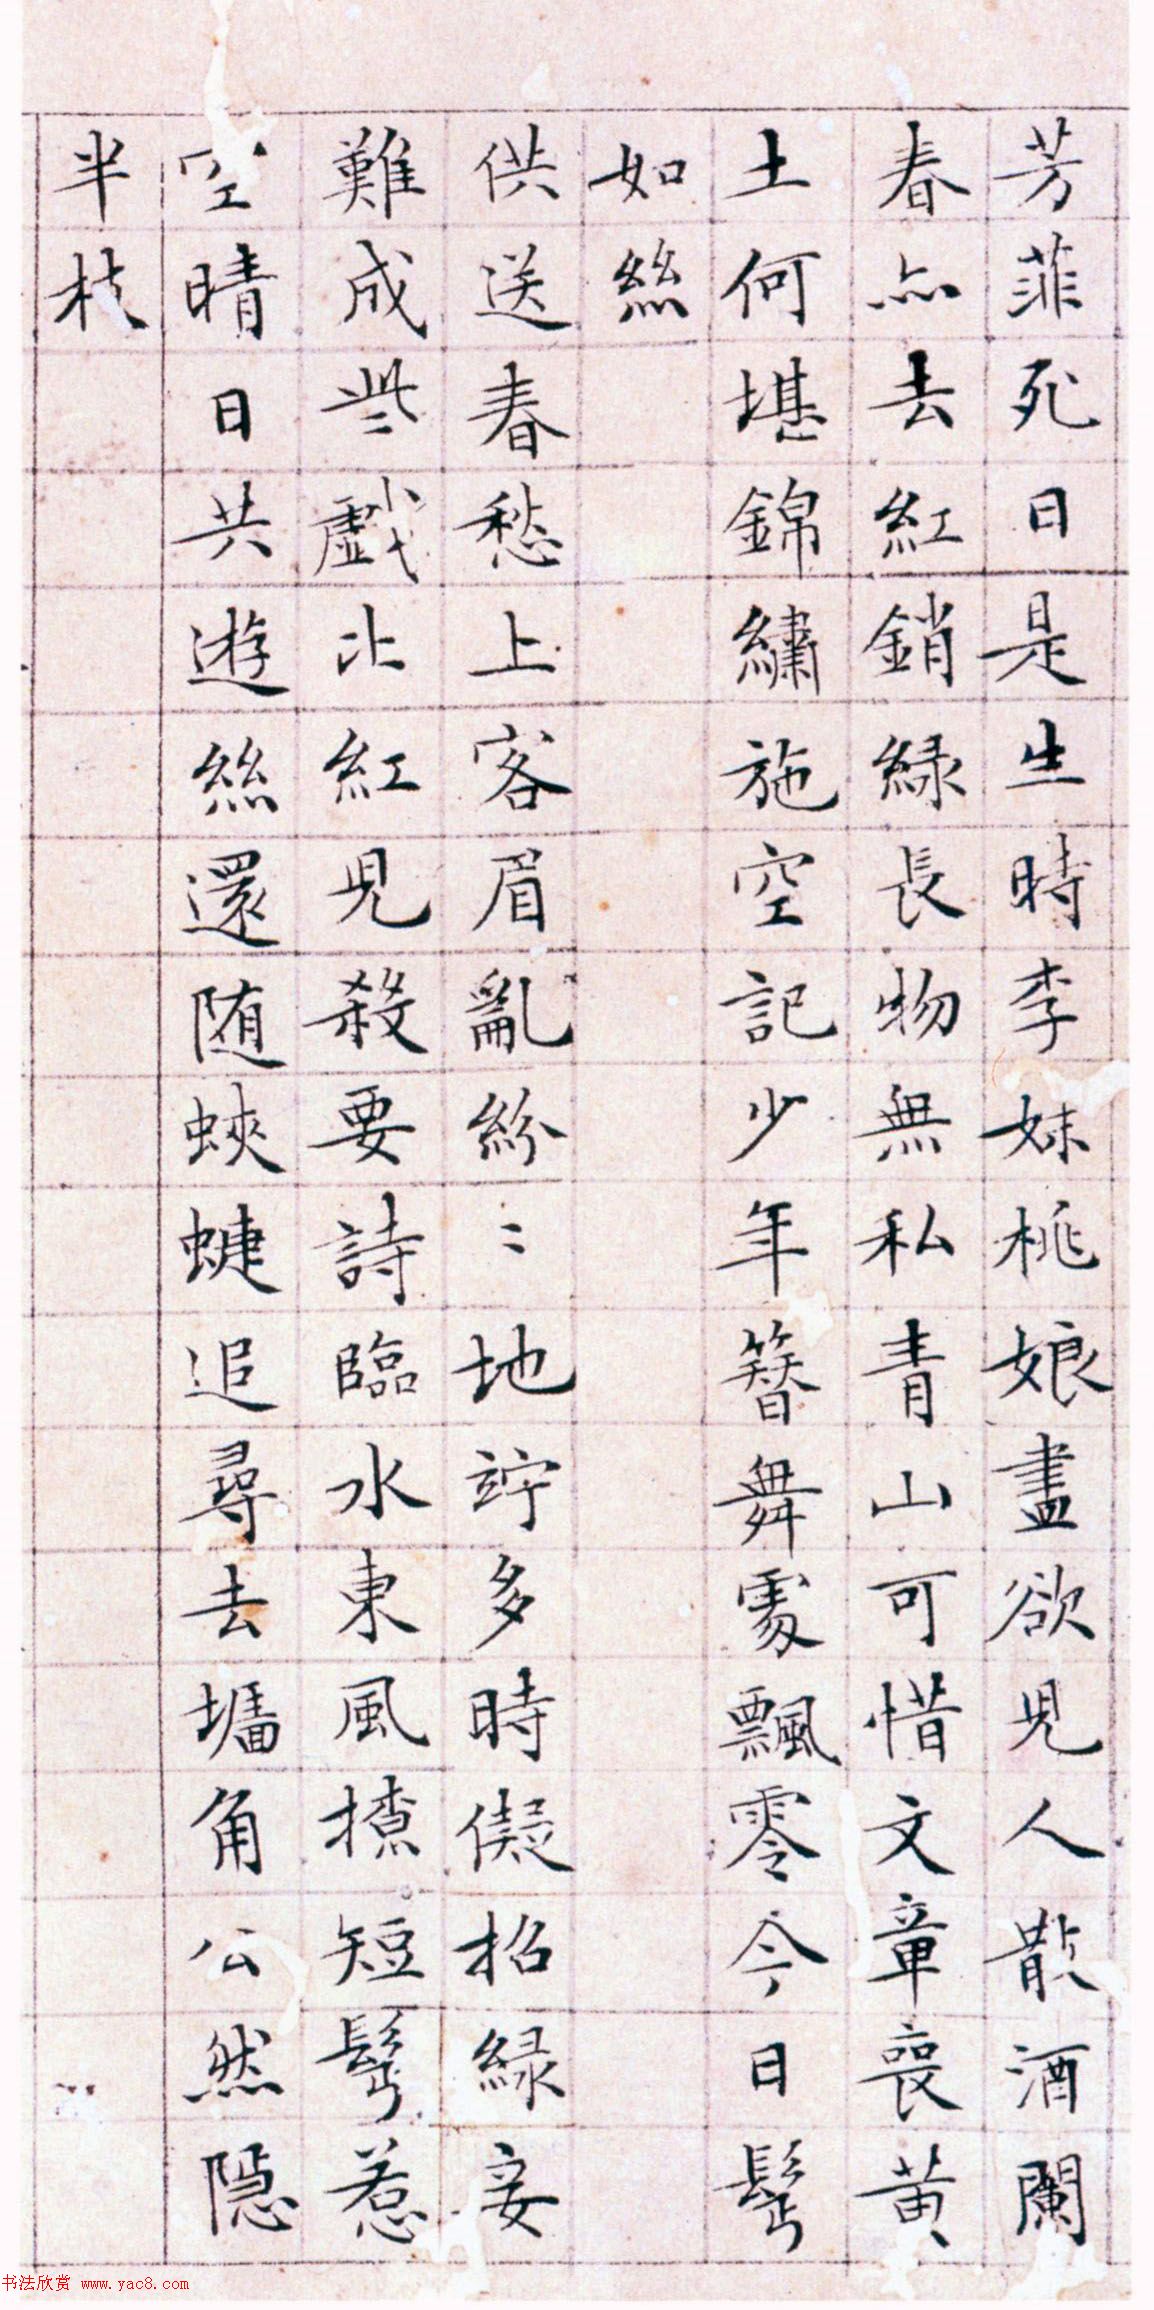 芳菲死日是生時李妹桃娘盡欲兒人散酒闌
春亦去紅銷緑長物無私青山可惜文章喪黄
土何堪錦繡施空記少年簪舞處飄零今日鬢
如絲
供送春愁上客眉亂紛〻地竚多時儗招緑妾
難成些戲比紅兒殺要詩臨水東風撩短鬢惹
空晴日共遊絲還随蛺蜨追尋去墻角公然隱
半枝
书法欣赏 www.yac8.com